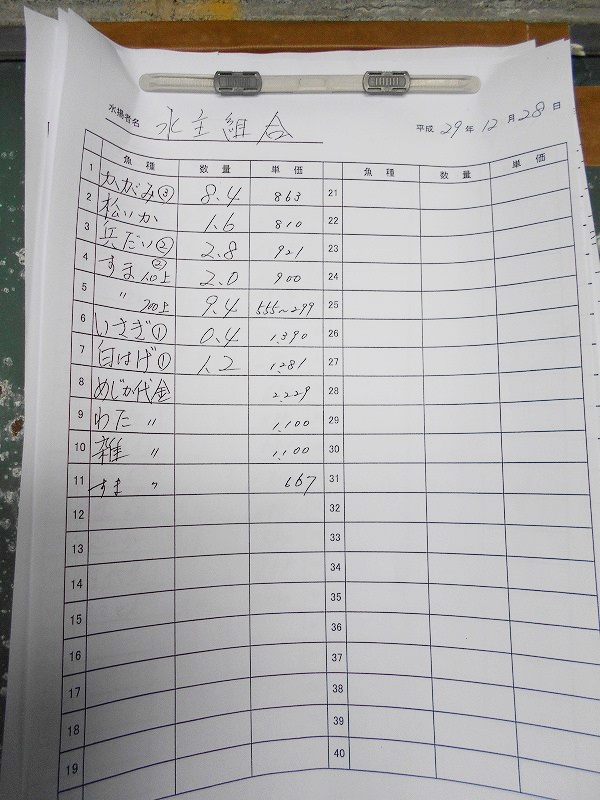 水揚者名 水主組合 平成 29年 12月 28日
魚種 数量 単価 魚種 数量 単価
1 かがみ③ 8.4 863 21
2 松いか 1.6 810 22
3 兵だい② 2.8 921 23
4 すま② 上 2.0 900 24
5 〃 700上 9.4 555~299 25
6 いさぎ① 0.4 1.390 26
7 白はげ① 1.2 1.281 27
8 めじか代金 2.229 28
9 わた 〃 1.100 29
10 雑 〃 1.100 30
11 すま 〃 667 31
12 32
13 33
14 34
15 35
16 36
17 37
18 38
19 39
40